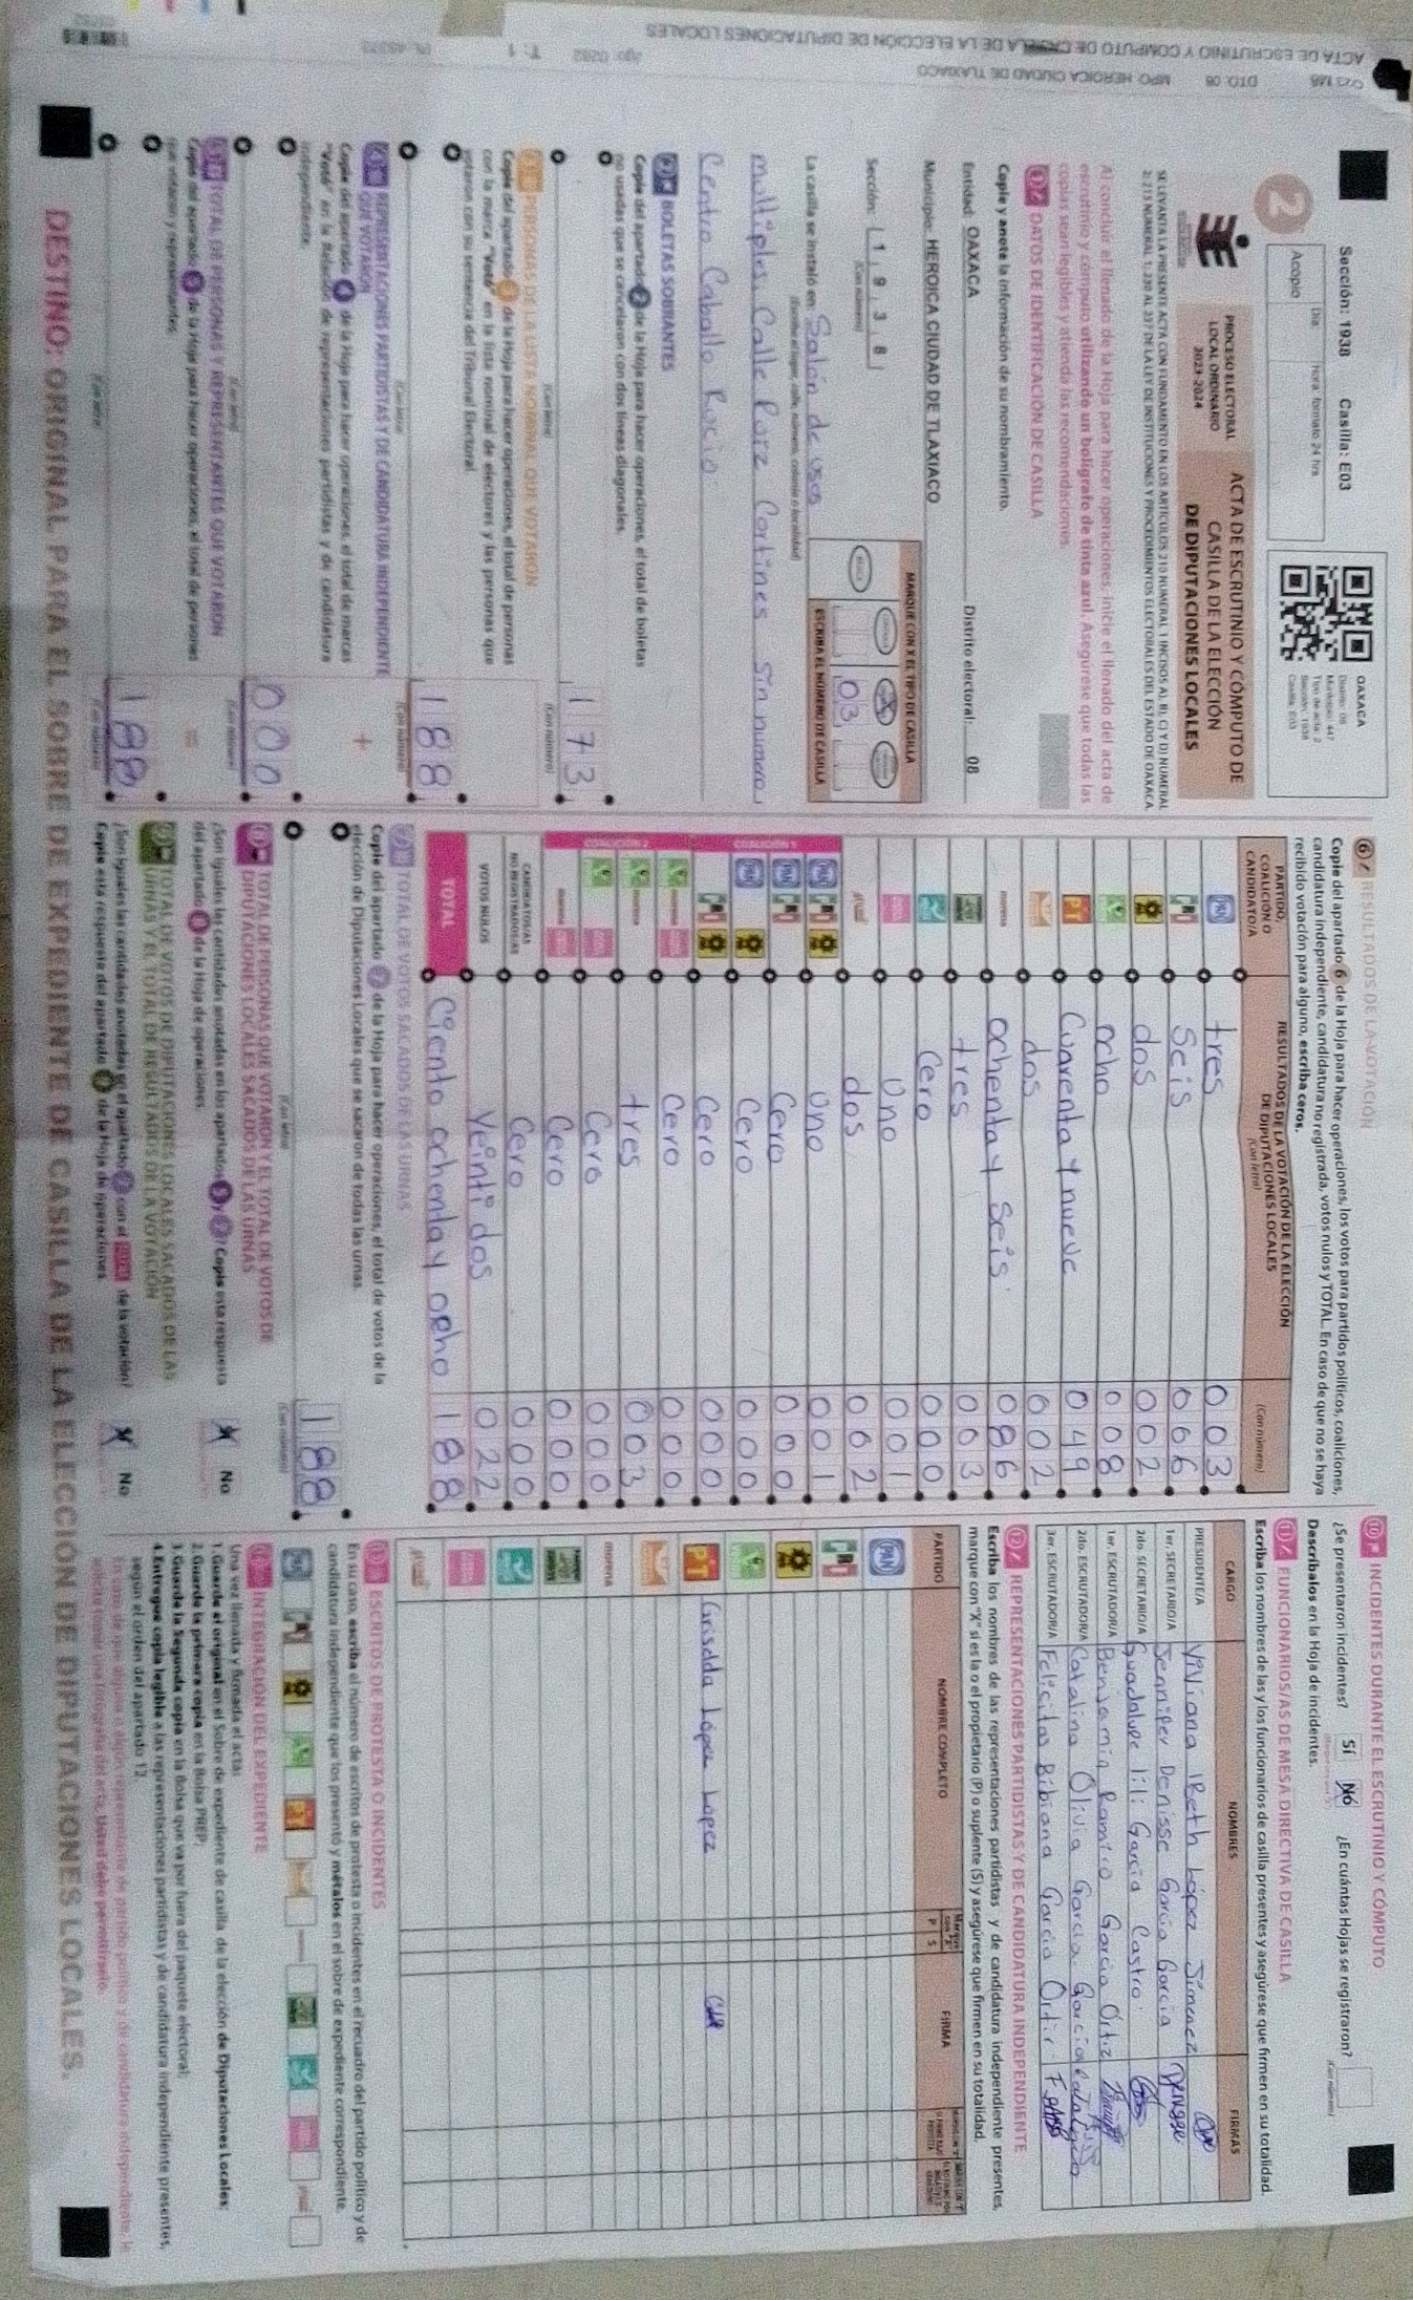 Sección: 1938 Casilla: E03
Día
hora: formato 24 hrs
Acopio
OAXACA
2
PROCESO ELECTORAL
LOCAL ORDINARIO
2023-2024
ACTA DE ESCRUTINIO Y CÓMPUTO DE
CASILLA DE LA ELECCIÓN
DE DIPUTACIONES LOCALES
Al concluir el llenado de la Hoja para hacer operaciones, inicie el llenado del acta de
escrutinio y cómputo utilizando un bolígrafo de tinta azul. Asegúrese que todas las
copias sean legibles y atienda las recomendaciones.
1 DATOS DE IDENTIFICACIÓN DE CASILLA
Copie y anote la información de su nombramiento.
Entidad: OAXACA Distrito electoral: 08
Municipio: HEROICA CIUDAD DE TLAXIACO
Sección: 1 9 3 8
(Con número)
MARQUE CON X EL TIPO DE CASILLA
03
ESCRIBA EL NÚMERO DE CASILLA
La casilla se instaló en: Salón de usos
(Escriba el lugar, calle, número, colonia o localidad)
multiples, Calle Ruiz Cortines sin numero,
Centro Caballo Rucio.
2 BOLETAS SOBRANTES
Copie del apartado 2 de la Hoja para hacer operaciones, el total de boletas
no usadas que se cancelaron con dos líneas diagonales.
173
(Con letra) (Con número)
3 PERSONAS DE LA LISTA NOMINAL QUE VOTARON
Copie del apartado 3 de la Hoja para hacer operaciones, el total de personas
con la marca "Votó" en la lista nominal de electores y las personas que
votaron con su sentencia del Tribunal Electoral.
188
(Con letra) (Con número)
4 REPRESENTACIONES PARTIDISTAS Y DE CANDIDATURA INDEPENDIENTE
QUE VOTARON
Copie del apartado 4 de la Hoja para hacer operaciones, el total de marcas
"Votó" en la Relación de representaciones partidistas y de candidatura
independiente.
+
000
(Con letra) (Con número)
5 TOTAL DE PERSONAS Y REPRESENTANTES QUE VOTARON
Copie del apartado 5 de la Hoja para hacer operaciones, el total de personas
que votaron y representantes.
=
188
(Con letra) (Con número)
6 RESULTADOS DE LA VOTACIÓN
Copie del apartado 6 de la Hoja para hacer operaciones, los votos para partidos políticos, coaliciones,
candidatura independiente, candidatura no registrada, votos nulos y TOTAL. En caso de que no se haya
recibido votación para alguno, escriba ceros.
PARTIDO,
COALICIÓN O
CANDIDATO/A
RESULTADOS DE LA VOTACIÓN DE LA ELECCIÓN
DE DIPUTACIONES LOCALES
(Con letra) (Con número)
PAN tres 003
PRI Seis 006
dos 002
ocho 008
PT Cuarenta y nueve 049
dos 002
morena ochenta y seis 086
tres 003
Cero 000
Uno 001
dos 002
COALICIÓN 1
PAN PRI Uno 001
PAN PRI Cero 000
PAN Cero 000
PRI Cero 000
COALICIÓN 2
Cero 000
tres 003
Cero 000
Cero 000
CANDIDATOS/AS
NO REGISTRADOS/AS Cero 000
VOTOS NULOS Veinti dos 022
TOTAL Ciento ochenta y ocho 188
7 TOTAL DE VOTOS SACADOS DE LAS URNAS
Copie del apartado 7 de la Hoja para hacer operaciones, el total de votos de la
elección de Diputaciones Locales que se sacaron de todas las urnas.
188
(Con letra) (Con número)
8 TOTAL DE PERSONAS QUE VOTARON Y EL TOTAL DE VOTOS DE
DIPUTACIONES LOCALES SACADOS DE LAS URNAS
¿Son iguales las cantidades anotadas en los apartados 5 y 7? Copie esta respuesta
del apartado 8 de la Hoja de operaciones.
X No
9 TOTAL DE VOTOS DE DIPUTACIONES LOCALES SACADOS DE LAS
URNAS Y EL TOTAL DE RESULTADOS DE LA VOTACIÓN
¿Son iguales las cantidades anotadas en el apartado 7 con el TOTAL de la votación?
Copie esta respuesta del apartado 9 de la Hoja de operaciones
X No
10 INCIDENTES DURANTE EL ESCRUTINIO Y CÓMPUTO
¿Se presentaron incidentes? Sí No ¿En cuántas Hojas se registraron?
Descríbalos en la Hoja de incidentes.
11 FUNCIONARIOS/AS DE MESA DIRECTIVA DE CASILLA
Escriba los nombres de las y los funcionarios de casilla presentes y asegúrese que firmen en su totalidad.
CARGO NOMBRES FIRMAS
PRESIDENTE/A Viviana IBeth López Jimenez
1er. SECRETARIO/A Jennifer Denisse García García Denisse
2do. SECRETARIO/A Guadalupe lili García Castro.
1er. ESCRUTADOR/A Benjamin Ramiro Garcia Ortiz
2do. ESCRUTADOR/A Catalina Olivia Garcia. Garcia
3er. ESCRUTADOR/A Felicitas Bibiana Garcia Ortiz.
12 REPRESENTACIONES PARTIDISTAS Y DE CANDIDATURA INDEPENDIENTE
Escriba los nombres de las representaciones partidistas y de candidatura independiente presentes,
marque con "X" si es la o el propietario (P) o suplente (S) y asegúrese que firmen en su totalidad.
PARTIDO NOMBRE COMPLETO P S FIRMA
PAN
PRI
PT Griselda López López
morena
13 ESCRITOS DE PROTESTA O INCIDENTES
En su caso, escriba el número de escritos de protesta o incidentes en el recuadro del partido político y de
candidatura independiente que los presentó y métalos en el sobre de expediente correspondiente.
INTEGRACIÓN DEL EXPEDIENTE
Una vez llenada y firmada el acta:
1. Guarde el original en el Sobre de expediente de casilla de la elección de Diputaciones Locales;
2. Guarde la primera copia en la Bolsa PREP;
3. Guarde la Segunda copia en la Bolsa que va por fuera del paquete electoral;
4. Entregue copia legible a las representaciones partidistas y de candidatura independiente presentes,
según el orden del apartado 12.
DESTINO: ORIGINAL PARA EL SOBRE DE EXPEDIENTE DE CASILLA DE LA ELECCIÓN DE DIPUTACIONES LOCALES.
DTO: 08 MPO: HEROICA CIUDAD DE TLAXIACO